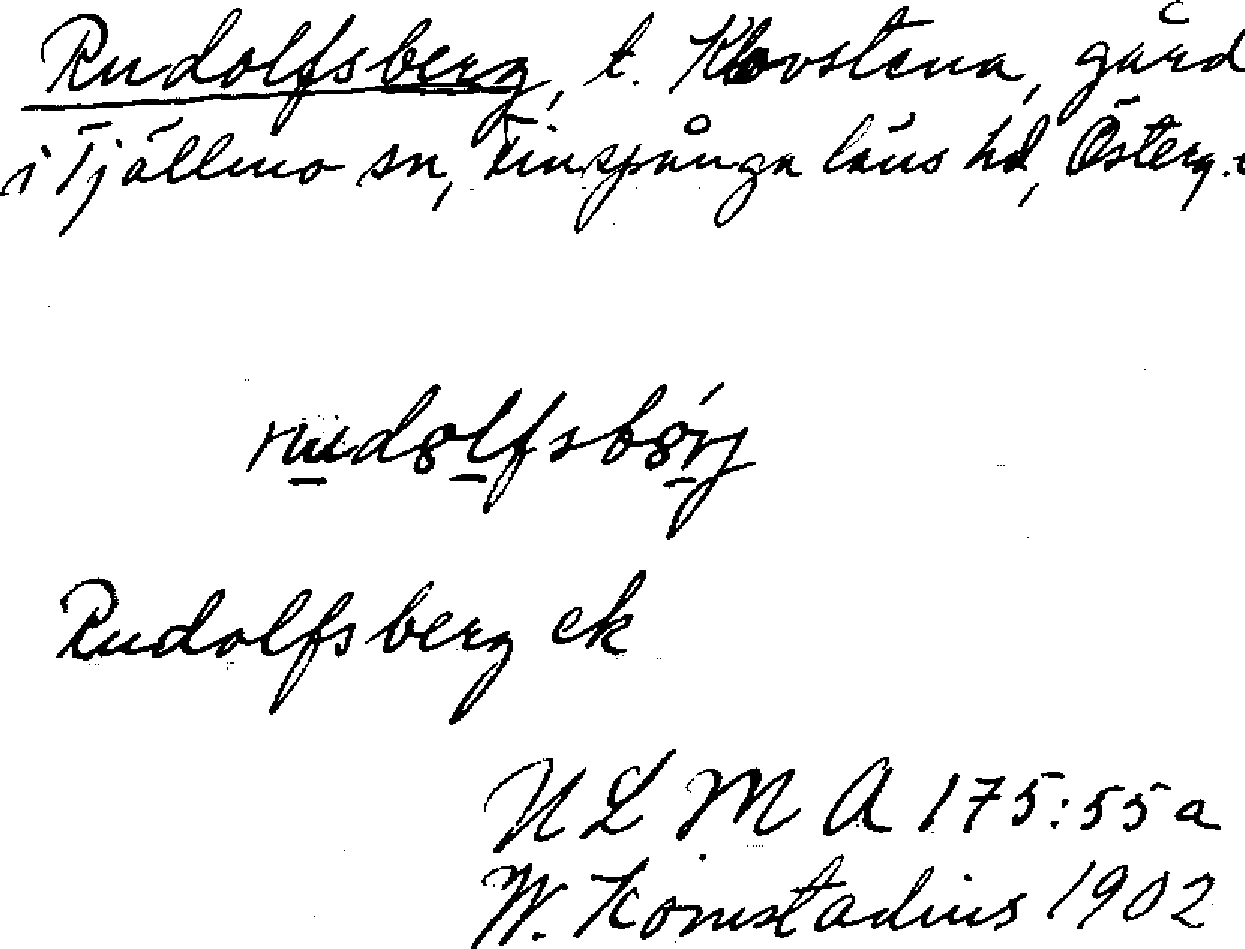 Rudolfsberg, t. Klovstena, gård
i Tjällmo sn, Finspånga läns hd, Österg.
rudolfsbärj
Rudolfsberg ek
ULMA 175:55a
W. Kornstadius 1902